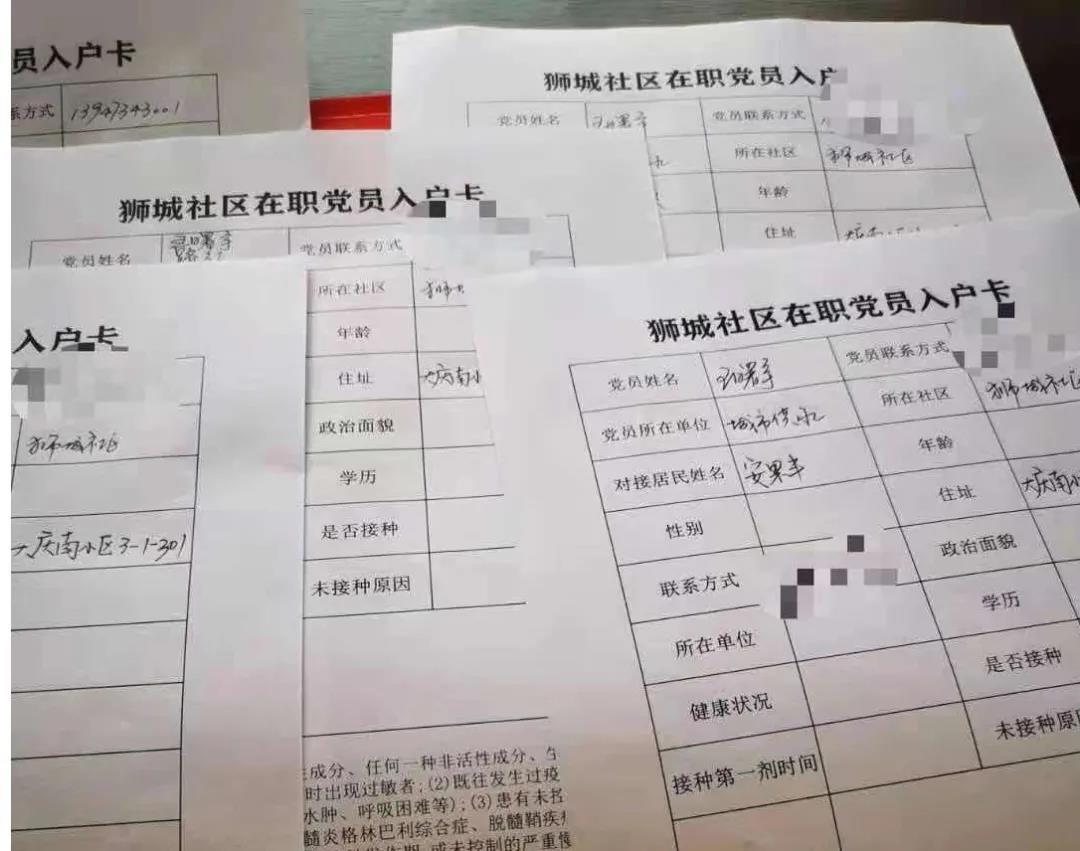 员入户卡
系方式 13947343001
狮城社区在职党员入户
党员姓名 党员联系方式
所在社区 狮城社区
年龄
住址
狮城社区在职党员入户卡
党员姓名 党员联系方式
所在社区
年龄
住址 大庆南小
政治面貌
学历
是否接种
未接种原因
成分、任何一种非活性成分、
时出现过敏者;(2)既往发生过疫
水肿、呼吸困难等);(3)患有未控
髓炎格林巴利综合症、脱髓鞘疾
或未控制的严重慢
入户卡
狮城社区
大庆南小区3-1-301
狮城社区在职党员入户卡
党员姓名 党员联系方式
党员所在单位 所在社区 狮城社区
对接居民姓名 年龄
性别 住址 大庆南小
联系方式 政治面貌
所在单位 学历
健康状况 是否接种
接种第一剂时间 未接种原